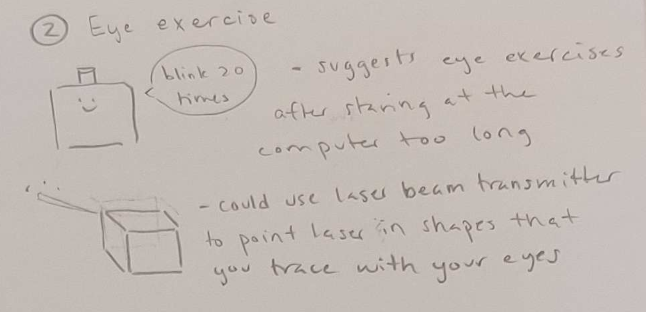 ② Eye exercise
blink 20
times
- suggests eye exercises
after staring at the
computer too long
- could use laser beam transmitter
to point laser in shapes that
you trace with your eyes